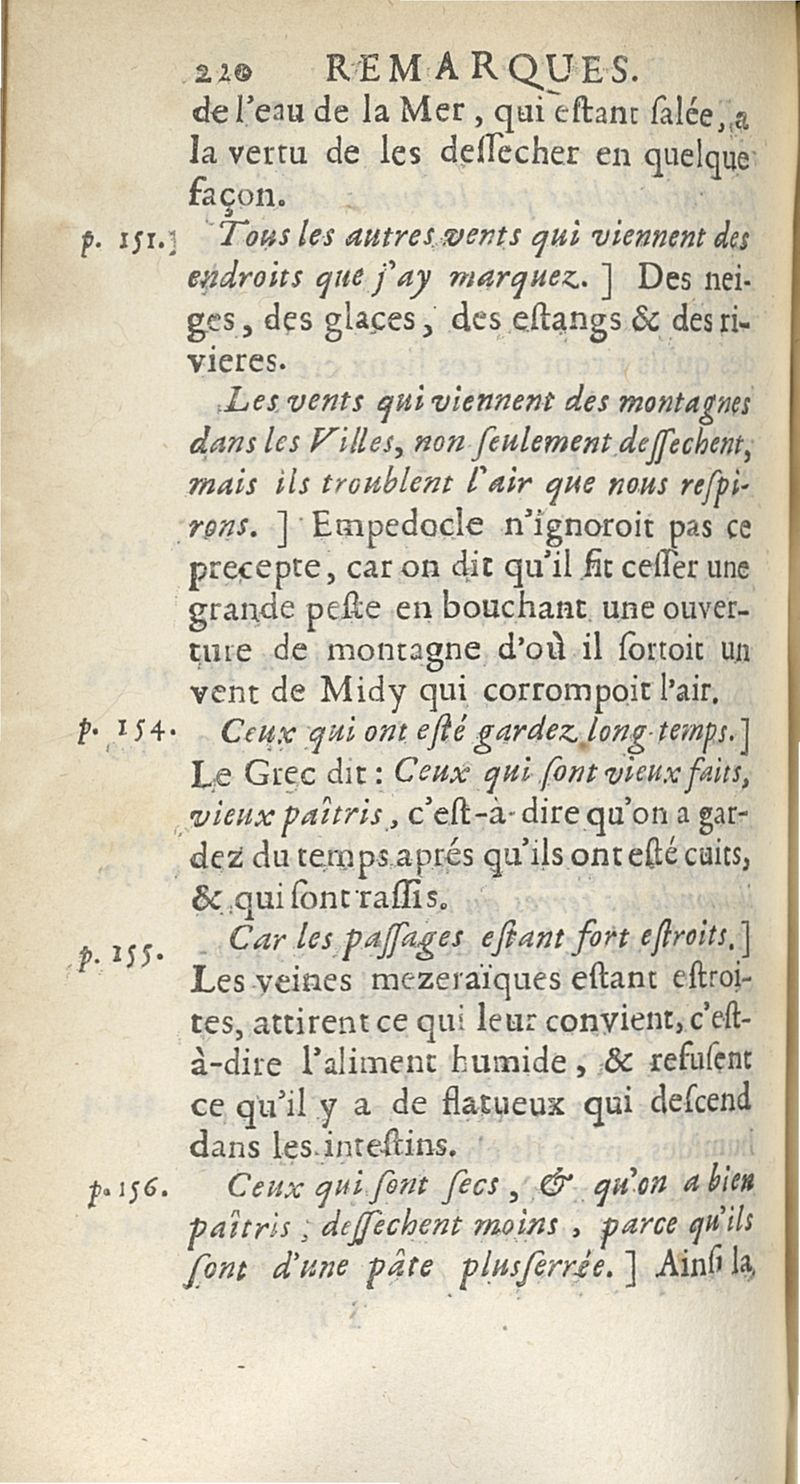 220 REMARQUES.
de l'eau de la Mer, qui estant ſalée, a
la vertu de les deſſecher en quelque
façon.
p. 151.] Tous les autres vents qui viennent des
endroits que j'ay marquez. ] Des nei-
ges, des glaces, des eſtangs & des ri-
vieres.
Les vents qui viennent des montagnes
dans les Villes, non ſeulement deſſechent,
mais ils troublent l'air que nous reſpi-
rons. ] Empedocle n'ignoroit pas ce
precepte, car on dit qu'il fit ceſſer une
grande peſte en bouchant une ouver-
ture de montagne d'où il ſortoit un
vent de Midy qui corrompoit l'air.
p. 154. Ceux qui ont eſté gardez long-temps.]
Le Grec dit : Ceux qui ſont vieux faits,
vieux paîtris, c'eſt-à-dire qu'on a gar-
dez du temps aprés qu'ils ont eſté cuits,
& qui ſont raſſis.
p. 155. Car les paſſages eſtant fort eſtroits.]
Les veines mezeraïques eſtant eſtroi-
tes, attirent ce qui leur convient, c'eſt-
à-dire l'aliment humide, & refuſent
ce qu'il y a de flatueux qui deſcend
dans les inteſtins.
p. 156. Ceux qui ſont ſecs, & qu'on a bien
paîtris, deſſechent moins, parce qu'ils
ſont d'une pâte plus ſerrée. ] Ainſi la